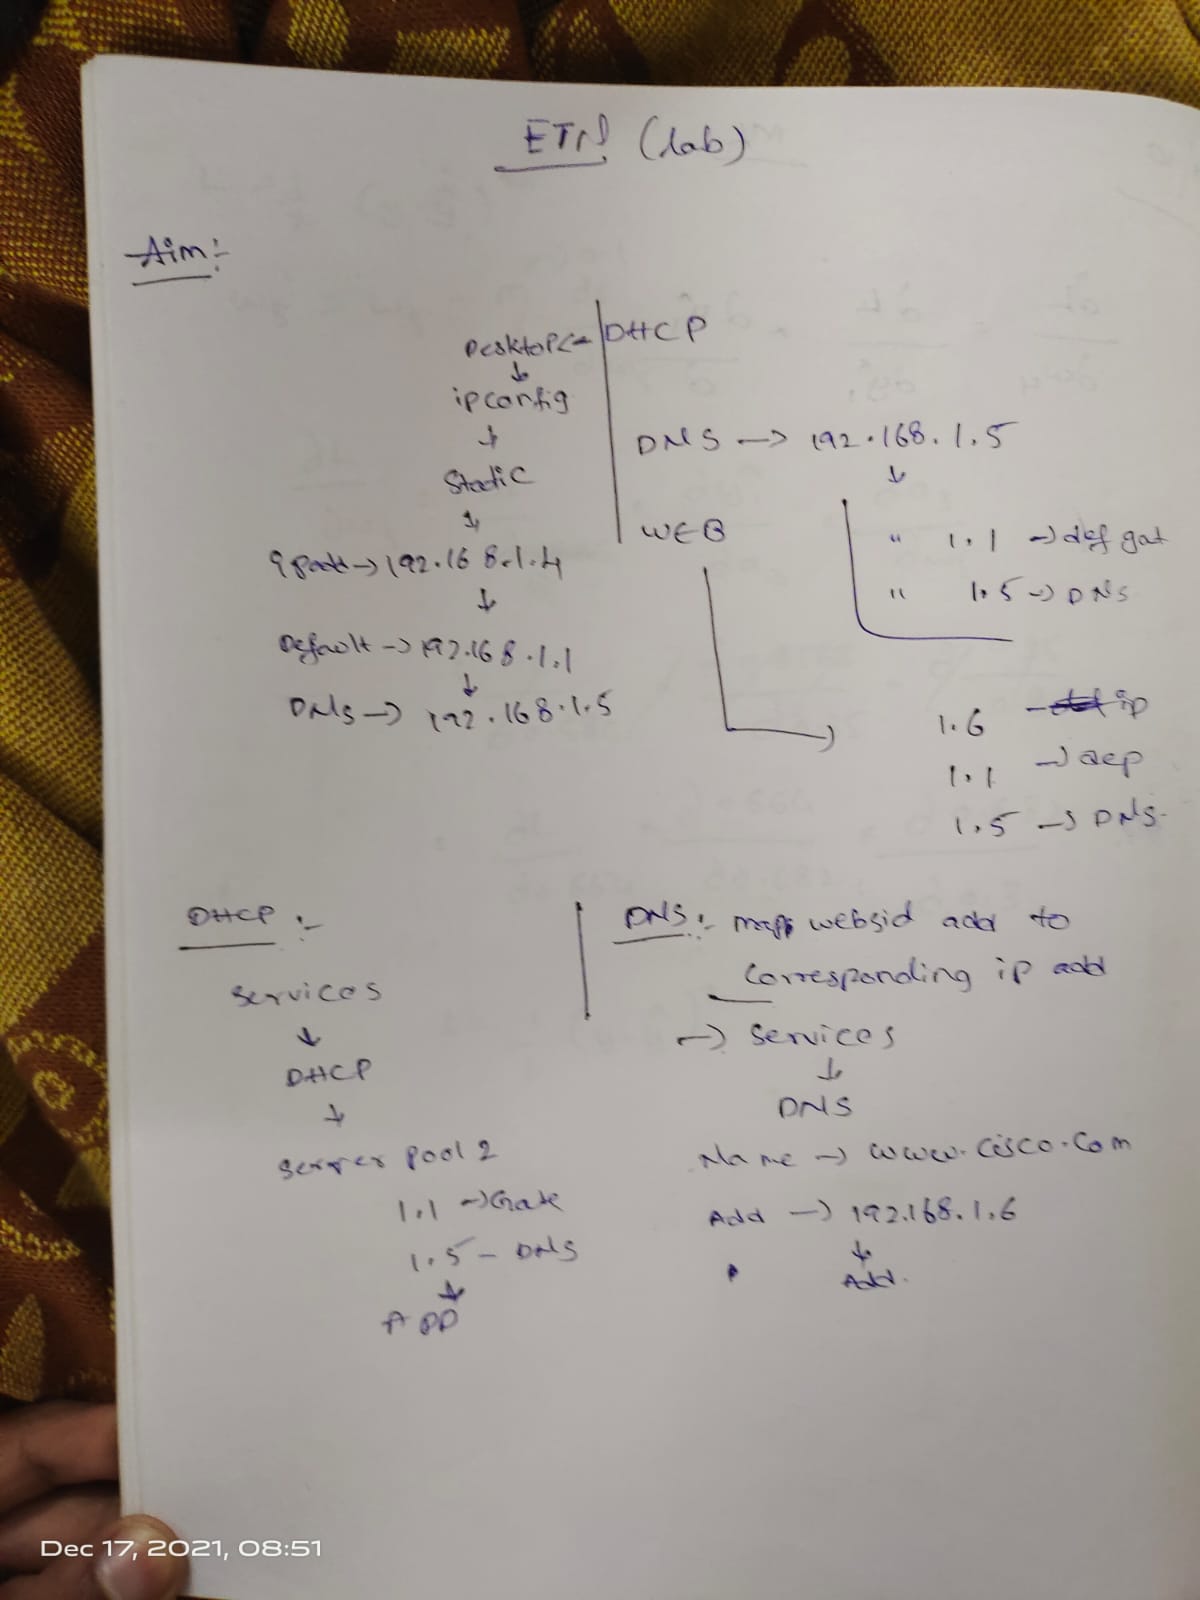 ETN (lab)
Aim:-
Desktop <- DHCP
↓
ipconfig
↓
Static
↓
ipadd -> 192.168.1.4
↓
Default -> 192.168.1.1
↓
DNS -> 192.168.1.5
DNS -> 192.168.1.5
↓
" 1.1 -> def gat
" 1.5 -> DNS
WEB
1.6 - ip
1.1 -> dep
1.5 -> DNS
DHCP :-
Services
↓
DHCP
↓
server pool 2
1.1 -> Gate
1.5 - DNS
↓
ADD
DNS :- maps websid add to
Corresponding ip add
-> Services
↓
DNS
Name -> www.cisco.com
Add -> 192.168.1.6
↓
Add.
Dec 17, 2021, 08:51